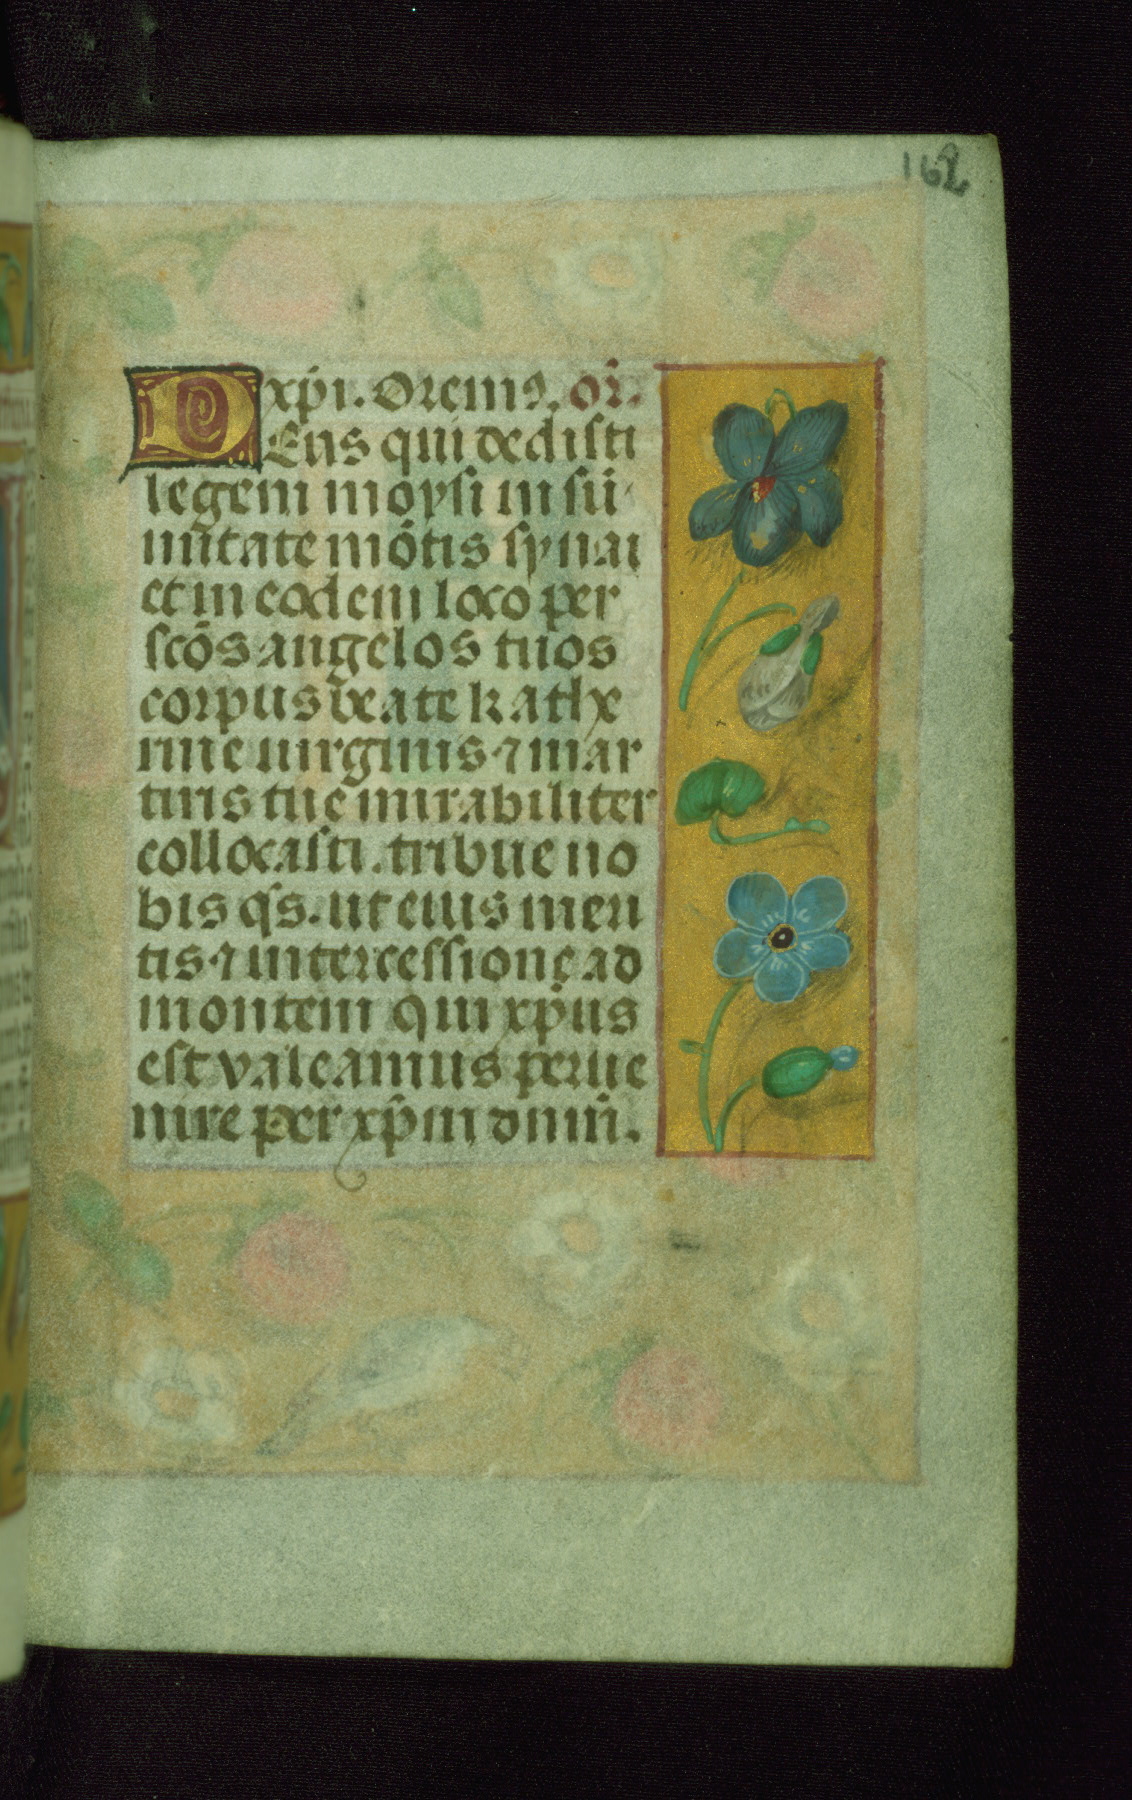 162
xp̄i. Oremꝰ. or̄.
DEus qui dedisti
legem moysi in sū
mitate mōtis synai
et in eodem loco per
scōs angelos tuos
corpus beate kathe
rine uirginis ⁊ mar
tiris tue mirabiliter
collocasti. tribue no
bis q̄s. ut eius meri
tis ⁊ intercessione ad
montem qui xp̄us
est valeamus perue
nire per xp̄m dn̄m.